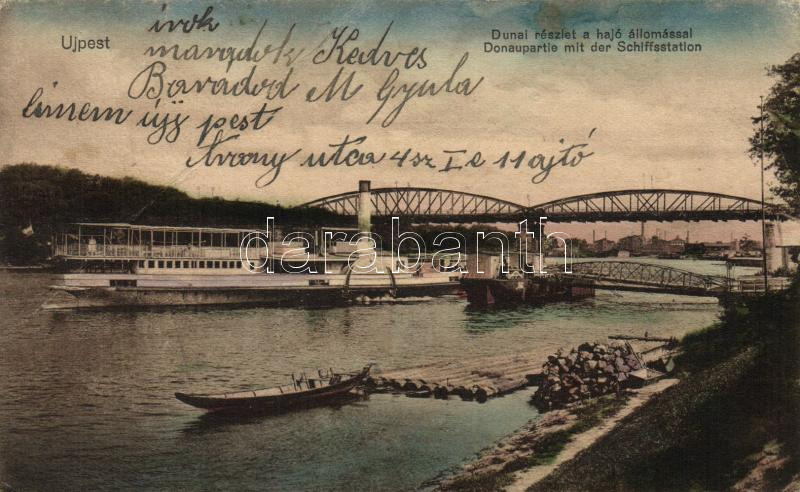 Ujpest
Dunai részlet a hajó állomással
Donaupartie mit der Schiffsstation
irok
maradok Kedves
Baradod M Gyula
limem újj pest
Arony utca 4sz I e 11 ajtó
darabanth